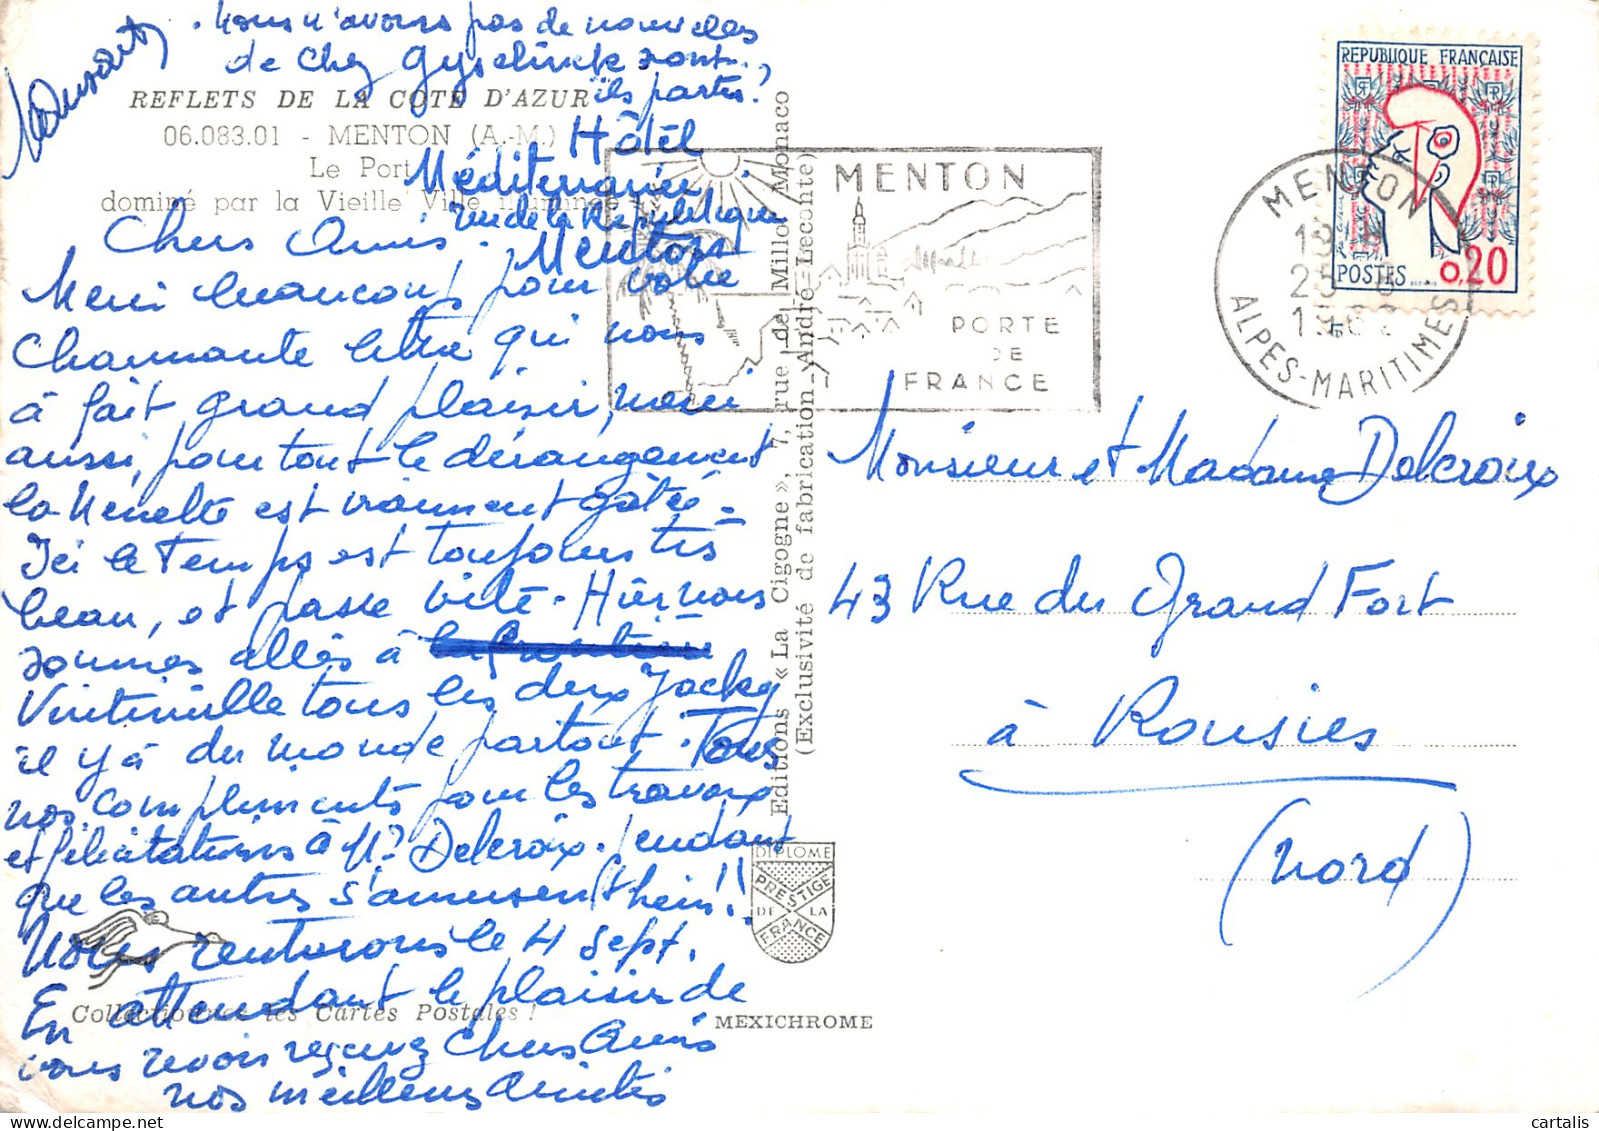 . Nous n'avons pas de nouvelles
de chez Gyselinck sont..,
ils partis?
REFLETS DE LA COTE D'AZUR
06.083.01 - MENTON (A.-M.)
Le Port
dominé par la Vieille Ville illuminée
Hôtel
Méditerranée
rue de la République
Menton
Chers Amis.
Merci beaucoup pour votre
charmante lettre qui nous
à fait grand plaisir, merci
aussi, pour tout le dérangement
la Ménette est vraiment gâtée -
Ici le temps est toujours très
beau, et passe vite - Hier nous
sommes allés à
Vintimille tous les deux Jacky
il y à du monde partout. Tous
nos compliments pour les travaux
et félicitations à Mr Delcroix. pendant
que les autres s'amusent hein!!
Nous rentrerons le 4 Sept.
En attendant le plaisir de
vous revoir recevez Chers Amis
nos meilleures amitiés
Collectionnez les Cartes Postales !
Editions « La Cigogne », 7, rue de Millo Monaco
(Exclusivité de fabrication André Leconte)
DIPLOME
PRESTIGE
DE LA
FRANCE
MEXICHROME
MENTON
PORTE
DE
FRANCE
MENTON
25
ALPES-MARITIMES
REPUBLIQUE FRANÇAISE
POSTES
0,20
Monsieur et Madame Delcroix
43 Rue du Grand Fort
à Rousies
(Nord)
cartalis